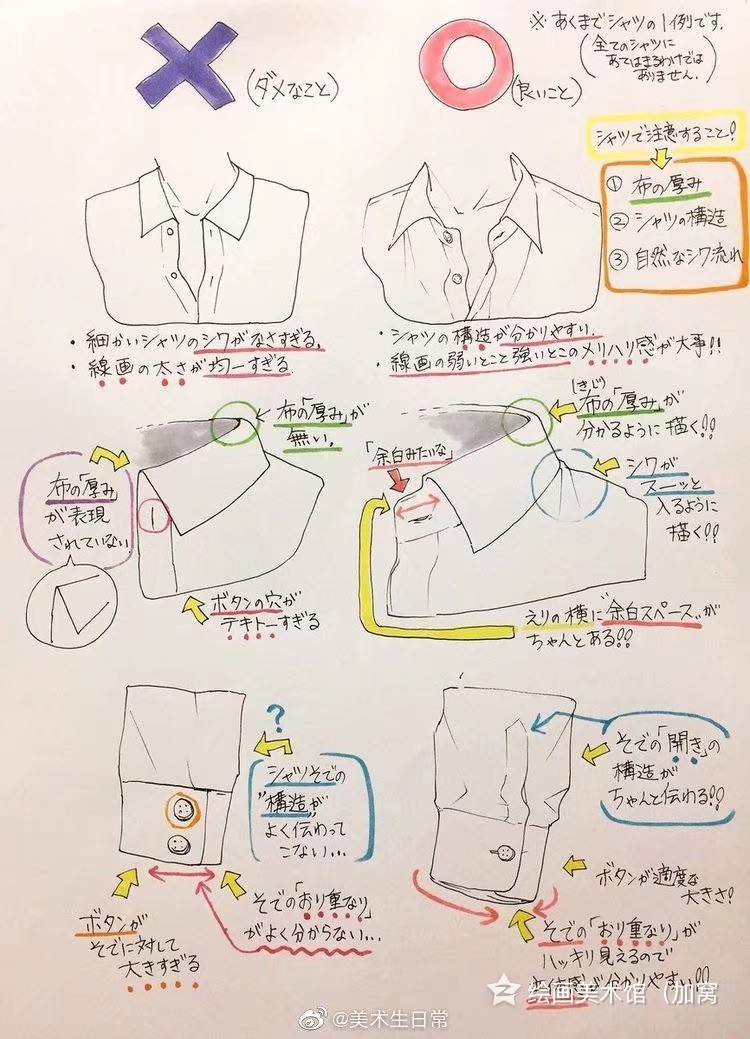 (ダメなこと)
(良いこと)
※あくまでシャツの1例です.
(全てのシャツに
あてはまるわけでは
ありません.)
シャツで注意すること!
① 布の厚み
② シャツの構造
③ 自然なシワ流れ
・細かいシャツのシワがなさすぎる.
・線画の太さが均一すぎる.
・シャツの構造が分かりやすい.
・線画の弱いとこと強いとこのメリハリ感が大事!!
布の「厚み」が
無い.
布の「厚み」
が表現
されていない.
ボタンの穴が
テキトーすぎる
(きじ)
布の「厚み」が
分かるように描く!!
「余白みたいな」
シワが
スーッと
入るように
描く!!
えりの横に"余白スペース"が
ちゃんとある!!
?
シャツそでの
"構造"が
よく伝わって
こない...
ボタンが
そでに対して
大きすぎる
そでの「おり重なり」
がよく分からない...
そでの「開き」の
構造が
ちゃんと伝わる!!
ボタンが適度な
大きさ!
そでの「おり重なり」が
ハッキリ見えるので
立体感が分かりやすい!!
绘画美术馆(加窝
@美术生日常